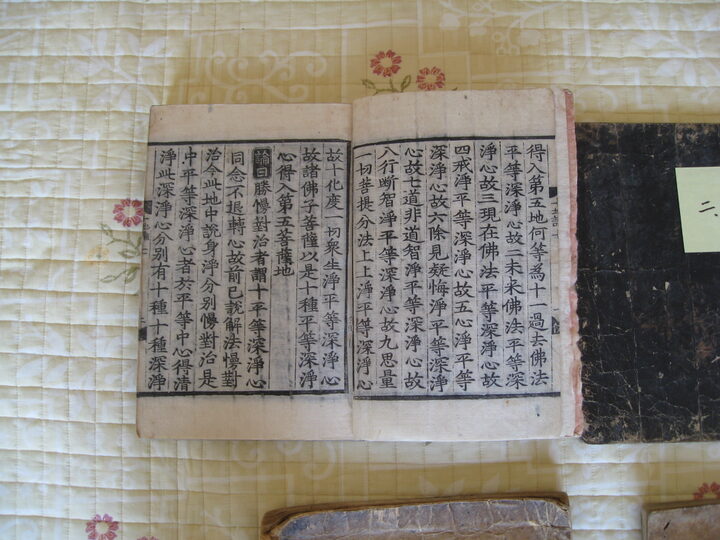 得入第五地何等為十一過去佛法
平等深淨心故二未來佛法平等深
淨心故三現在佛法平等深淨心故
四戒淨平等深淨心故五心淨平等
深淨心故六除見疑悔淨平等深淨
心故七道非道智淨平等深淨心故
八行断智淨平等深淨心故九思量
一切菩提分法上上淨平等深淨心
故十化度一切衆生淨平等深淨心
故諸佛子菩薩以是十種平等深淨
心得入第五菩薩地
論曰勝慢對治者謂十平等深淨心
同念不退轉心故前已說解法慢對
治今此地中說身淨分別慢對治是
中平等深淨心者於平等中心得清
淨此深淨心分別有十種十種深淨
二、